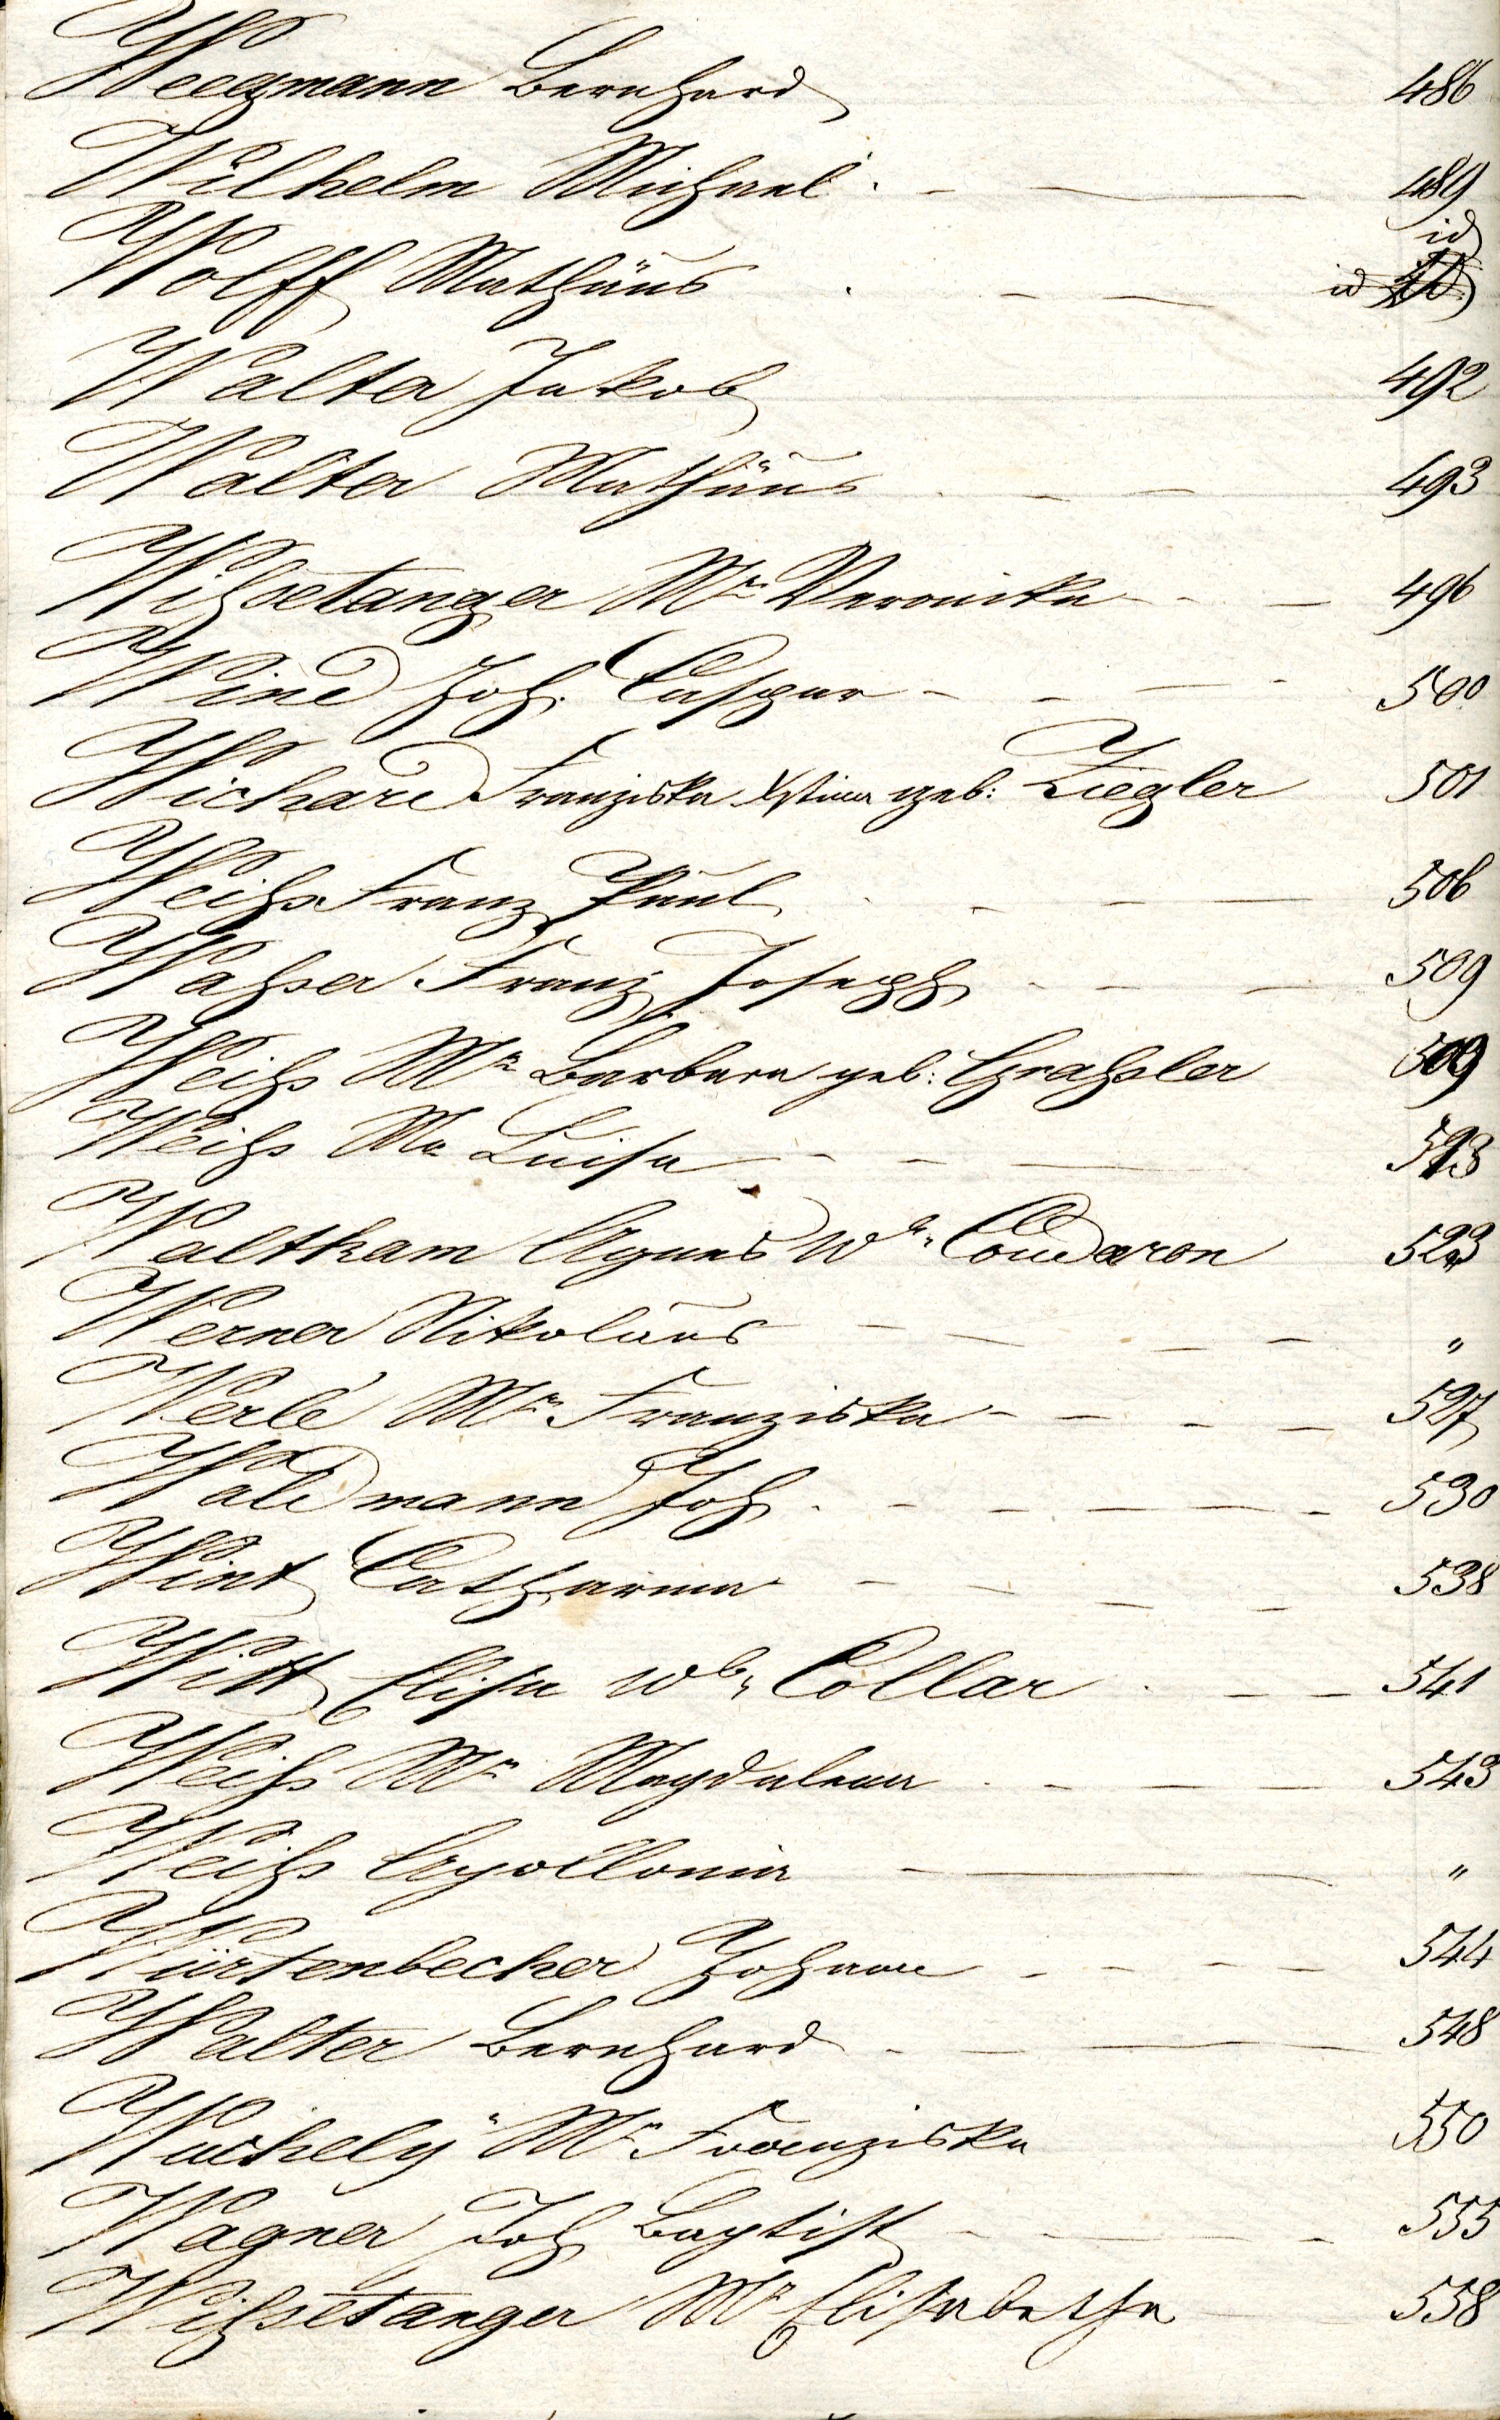 Weegmann Bernhard 486
Wilhelm Michael 489
id
Wolff Mathäus id
Walter Jakob 492
Walter Mathäus 493
Wißetanger Mª Veronika 496
Wind Joh. Caspar 500
Wichard Franziska Xstina geb: Ziegler 501
Weiß Franz Paul 506
Waßer Franz Joseph 509
Weiß Mª Barbara geb: Graßler 509
Weiß Ma Luisa 513
Waltham Agnes Wᵉ Condaron 523
Werner Nikolaus "
Werlé Mª Franziska 527
Waldmann Joh 530
Wint Catharina 538
Witt Elisa Wᵇ Collar 541
Weiß Mª Magdalena 543
Weiß Apollonia "
Würtenbecher Johann 544
Walter Bernhard 548
Wuchely Mª Franziska 550
Wagner Joh Baptist 555
Wißetanger Mª Elisabetha 558